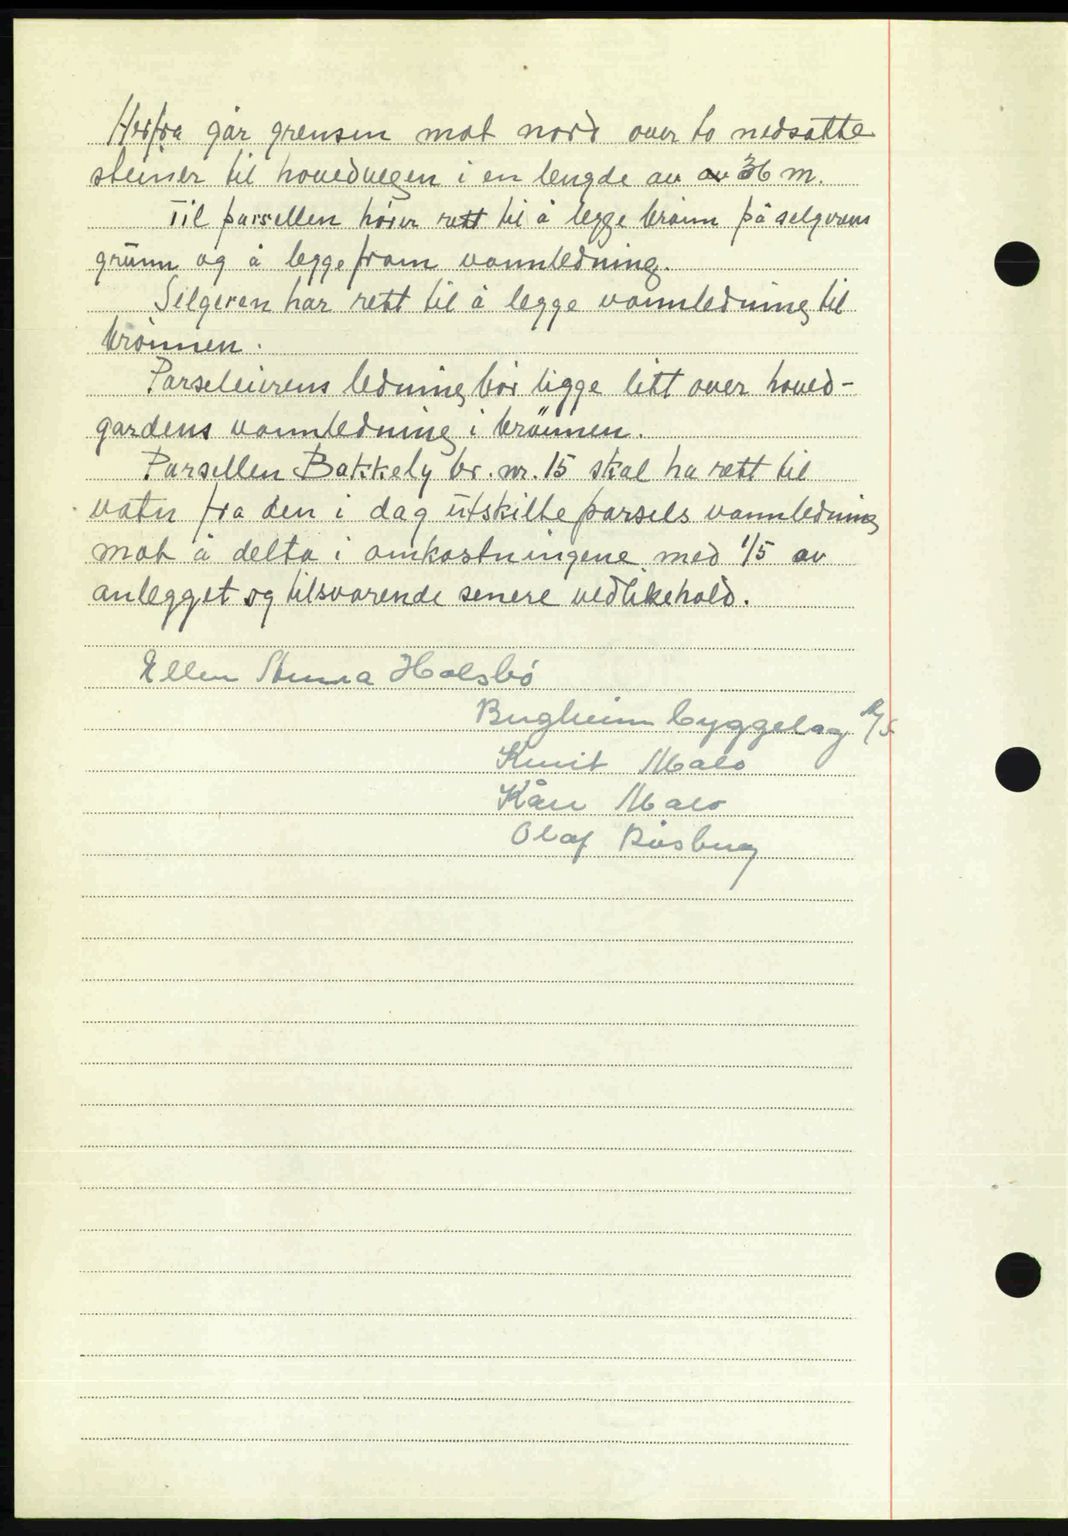 Herfra går grensen mot nord over to nedsatte
steiner til hovedvegen i en lengde av av 36 m.
Til parsellen hører rett til å legge brønn på selgerens
grunn og å legge fram vannledning.
Selgeren har rett til å legge vannledning til
brønnen.
Parseleierens ledning bør ligge litt over hoved-
gardens vannledning i brønnen.
Parsellen Bakkely br. nr. 15 skal ha rett til
vatn fra den i dag utskilte parsels vannledning
mot å delta i omkostningene med 1/5 av
anlegget og tilsvarende senere vedlikehold.
Ellen Holsbø
byggelag A/S
Knut Malo
Kåre Malo
Olaf